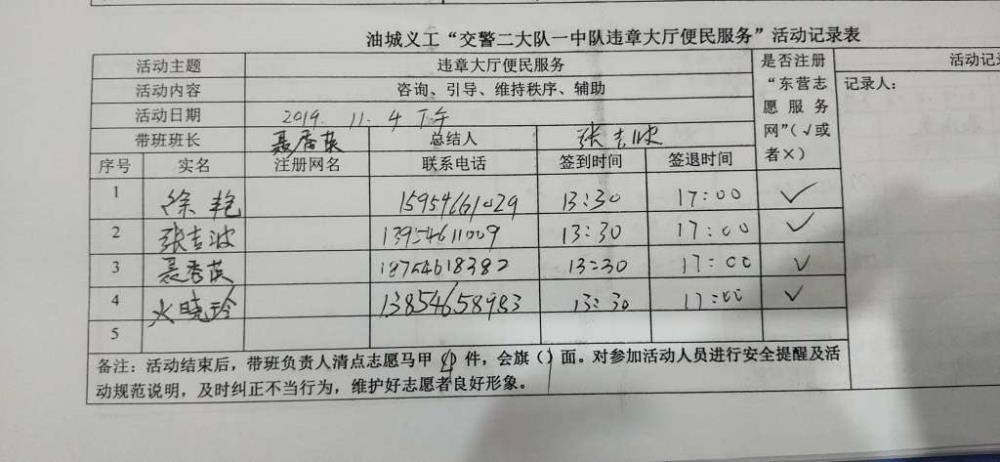 油城义工“交警二大队一中队违章大厅便民服务”活动记录表
活动主题 违章大厅便民服务 是否注册“东营志愿服务网”(√或者×) 活动记
活动内容 咨询、引导、维持秩序、辅助 记录人:
活动日期 2019. 11. 4 下午
带班班长 聂秀英 总结人 张吉波
序号 实名 注册网名 联系电话 签到时间 签退时间
1 徐艳 15954661029 13:30 17:00 ✓
2 张吉波 13954611009 13:30 17:00 ✓
3 聂秀英 18754618382 13:30 17:00 ✓
4 火晓玲 13854658983 13:30 17:00 ✓
5
备注:活动结束后,带班负责人清点志愿马甲(4)件,会旗( )面。对参加活动人员进行安全提醒及活
动规范说明,及时纠正不当行为,维护好志愿者良好形象。